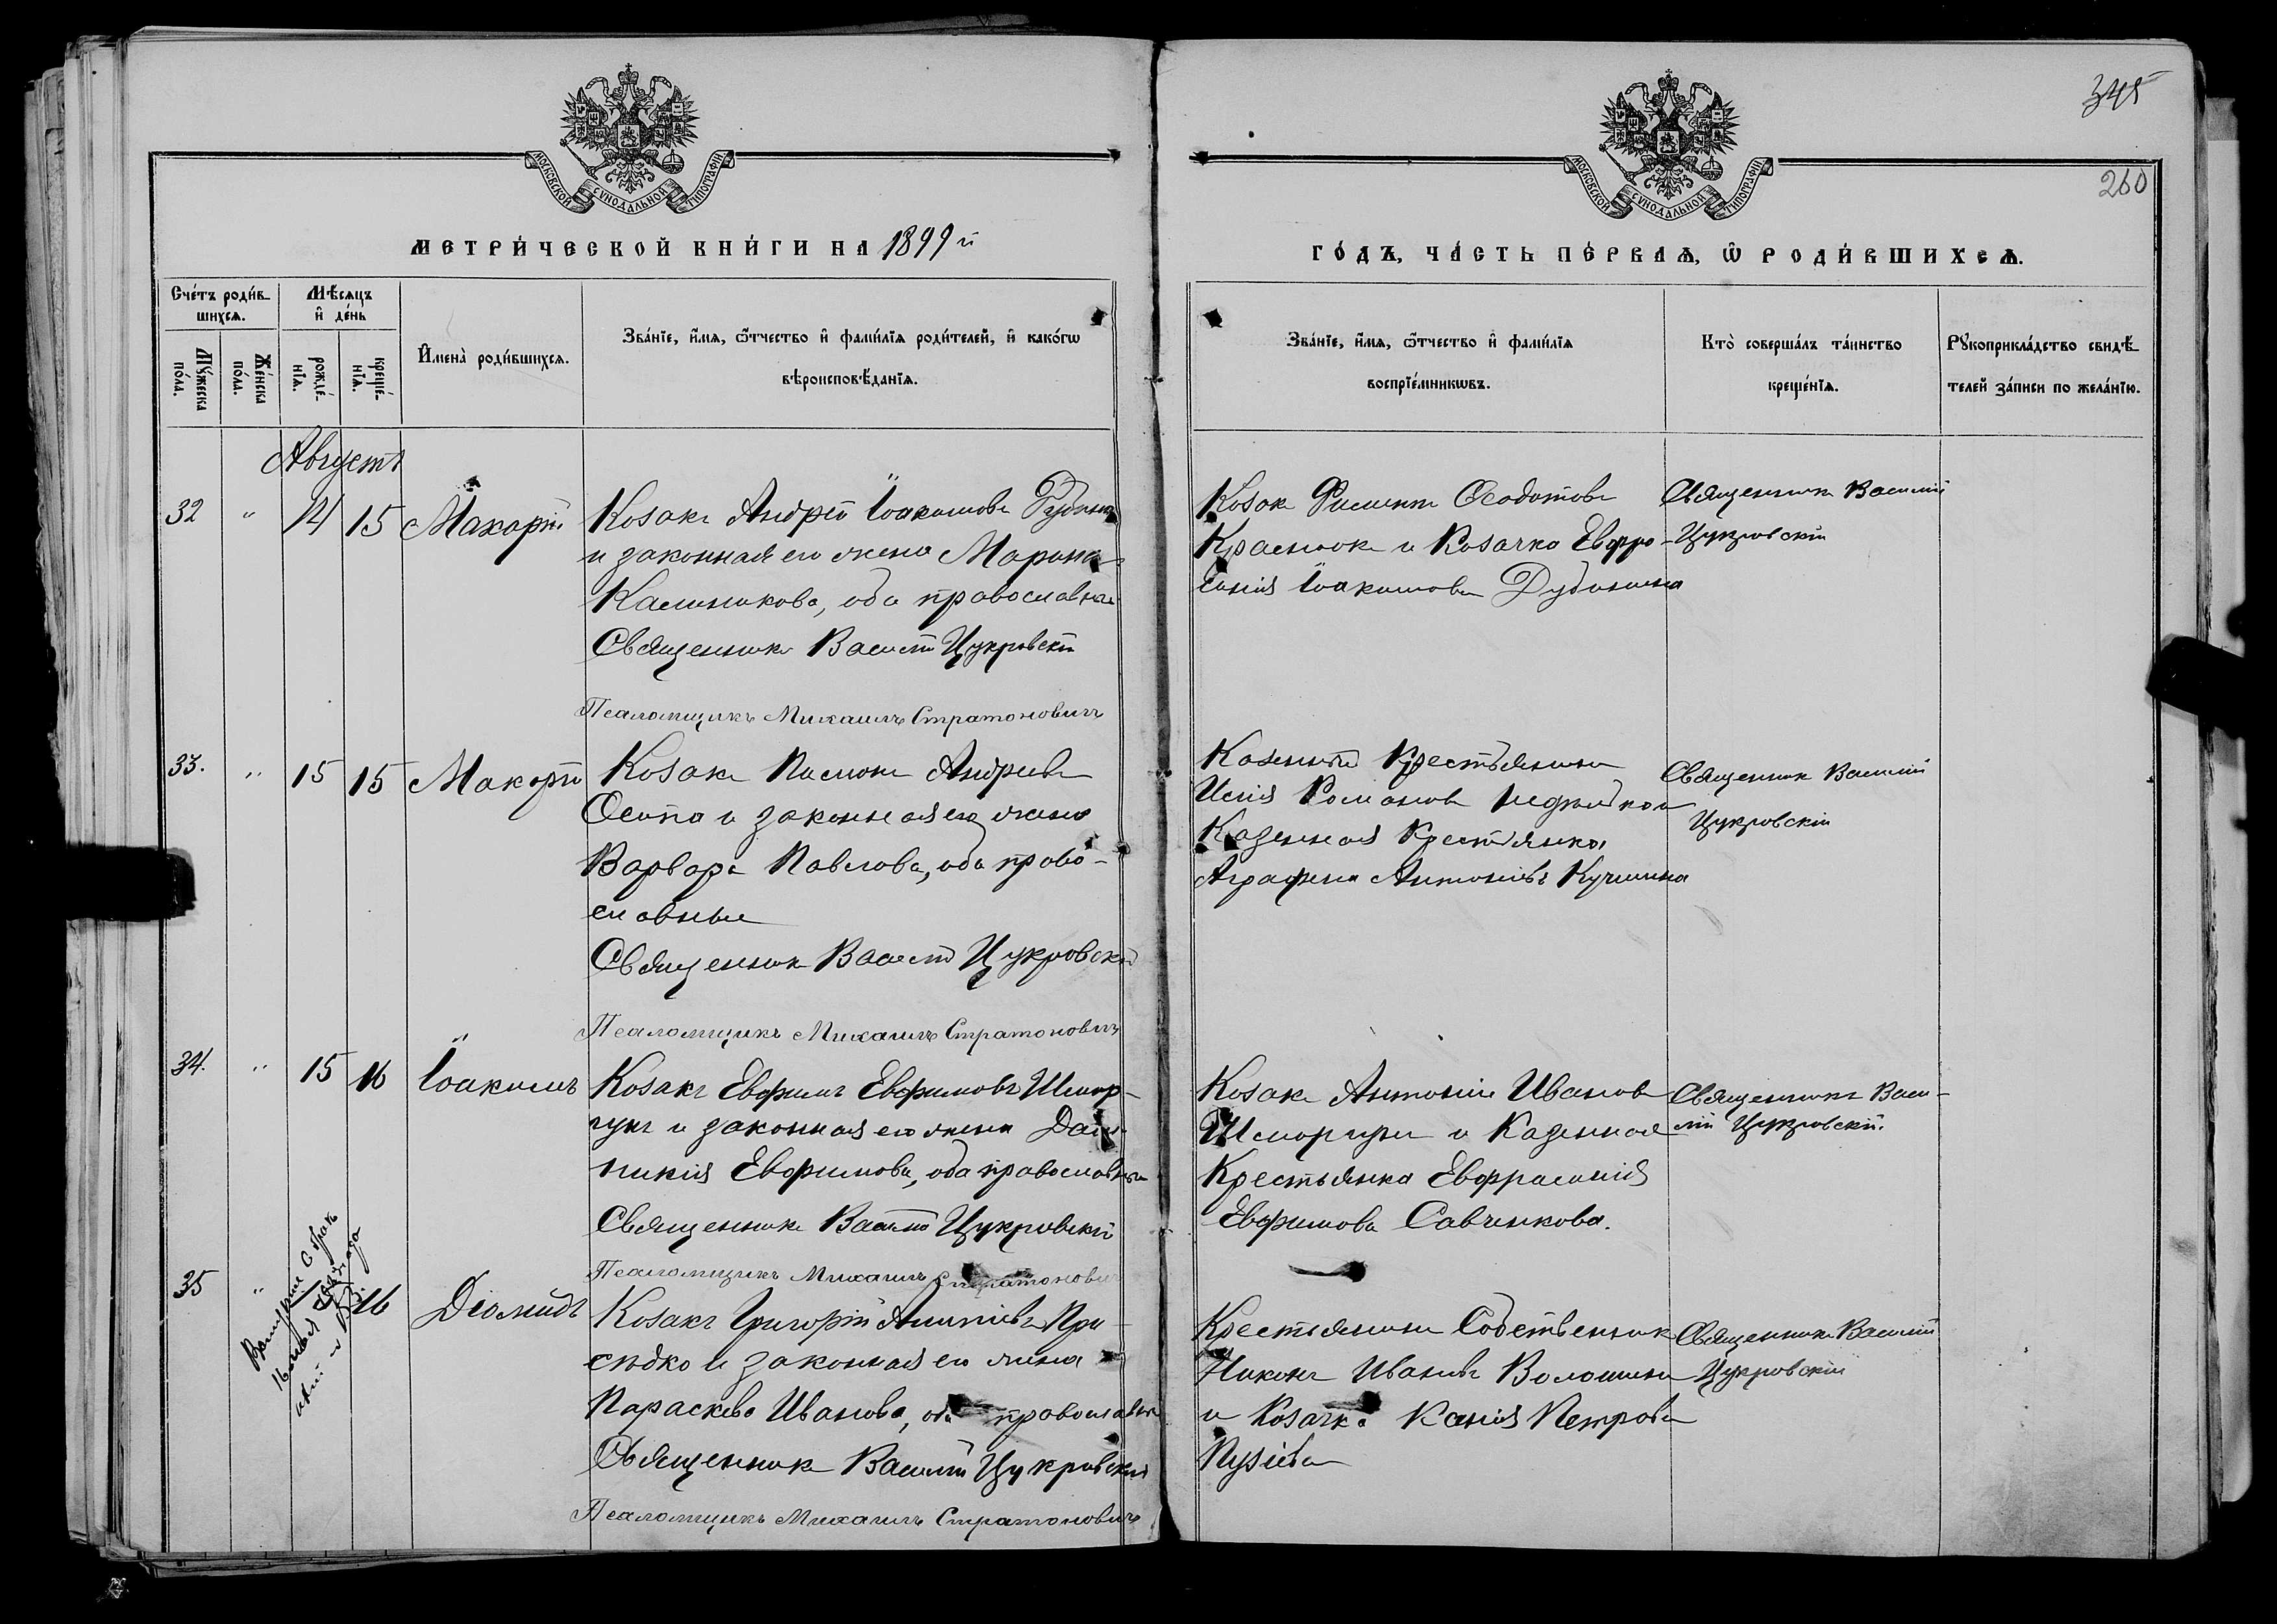 345
260
МОСКОВСКОЙ СѴНОДАЛЬНОЙ ТИПОГРАФІИ
МОСКОВСКОЙ СѴНОДАЛЬНОЙ ТИПОГРАФІИ
МЕТРИ́ЧЕСКОЙ КНИ́ГИ НА 1899 й
ГО́ДЪ, ЧА́СТЬ ПЕ́РВАѦ, Ѿ РОДИ́ВШИХСѦ.
Сче́тъ роди́в-
шихсѧ.
Мѣ́сѧцъ
и҆ де́нь
Мꙋ́жеска
по́ла.
Же́нска
по́ла.
рожде́-
нїѧ.
креще́-
нїѧ.
И҆мена̀ роди́вшихсѧ.
Зва́нїе, и҆́мѧ, ѻ҆́тчество и҆ фами́лїѧ роди́телей, и҆ како́гѡ
вѣроисповѣ́данїѧ.
Зва́нїе, и҆́мѧ, ѻ҆́тчество и҆ фами́лїѧ
воспрїе́мникѡвъ.
Кто̀ соверша́лъ та́инство
креще́нїѧ.
Рꙋкоприкла́дство свидѣ́-
телей за́писи по жела́нїю.
Августъ
32 " 14 15 Макарій
Козакъ Андрей Іоакимовъ
и законная его жена Марина
Калиникова, оба православные
Священникъ Василій Цукровскій
Псаломщикъ Михаилъ Стратоновичъ
Козакъ Филиппъ Ѳеодотовъ
Краснюкъ и Козачка Евфро-
синія Іоакимова Дубинина
Священникъ Василій
Цукровскій
33. " 15 15 Макарій
Козакъ Андреевъ
Осипа и законная его жена
Варвара Павлова, оба право-
славные
Священникъ Василій Цукровскій
Псаломщикъ Михаилъ Стратоновичъ
Казенный Крестьянинъ
Романовъ
Казенная Крестьянка
Аграфена Антоніева Кучмина
Священникъ Василій
Цукровскій
34. " 15 16 Іоакимъ
Козакъ Евфимъ Евфимовъ Шмор-
гунъ и законная его жена Дом-
никія Евфимова, оба православные
Священникъ Василій Цукровскій
Псаломщикъ Михаилъ Стратоновичъ
Козакъ Антоній Ивановъ
Шморгунъ и Казенная
Крестьянка Евфрасинія
Евфимова Савченкова.
Священникъ Васи-
лій Цукровскій.
35 " 16 Діомидъ
Козакъ Григорій При-
сѣдко и законная его жена
Параскева Иванова, оба православные
Священникъ Василій Цукровскій
Псаломщикъ Михаилъ Стратоновичъ
Крестьянинъ Собственникъ
Никонъ Ивановъ Волошинъ
и Козачка Ксенія Петрова
Пузіева
Священникъ Василій
Цукровскій